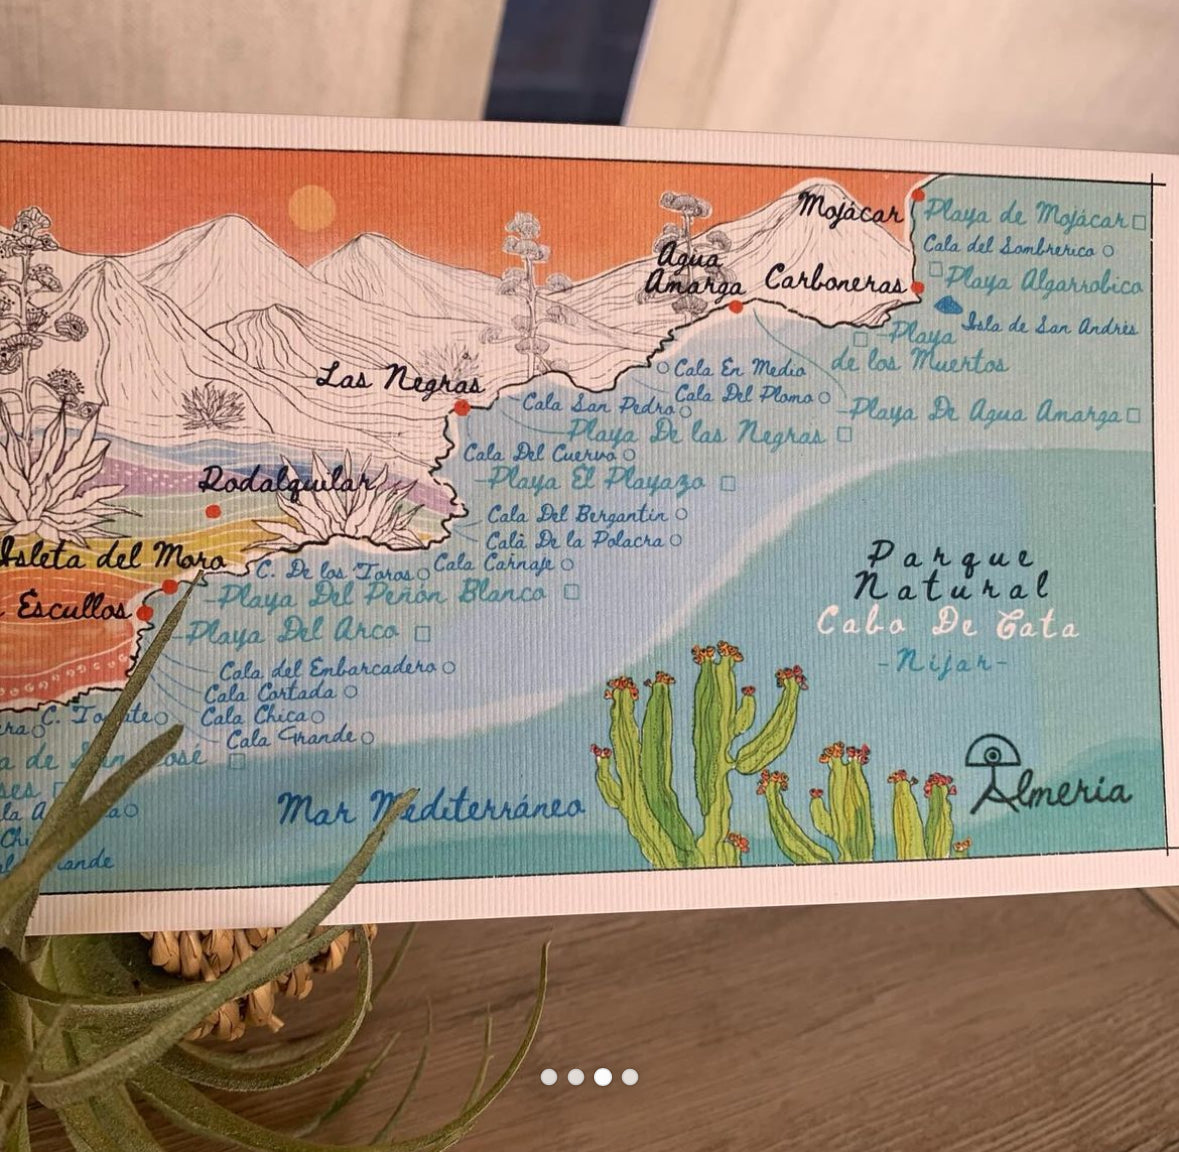 Mojácar
Playa de Mojácar
Cala del Sombrerico
Agua
Amarga
Carboneras
Playa Algarrobico
Isla de San Andrés
Playa
de los Muertos
Las Negras
Cala En Medio
Cala Del Plomo
Cala San Pedro
Playa De Agua Amarga
Playa De las Negras
Cala Del Cuervo
Rodalquilar
Playa El Playazo
Cala Del Bergantin
Cala De la Polacra
Isleta del Moro
C. De los Toros
Cala Carnaje
Playa Del Peñón Blanco
Escullos
Playa Del Arco
Parque
Natural
Cabo De Gata
-Nijar-
Cala del Embarcadero
Cala Cortada
Cala Chica
Cala Grande
Mar Mediterráneo
Almería